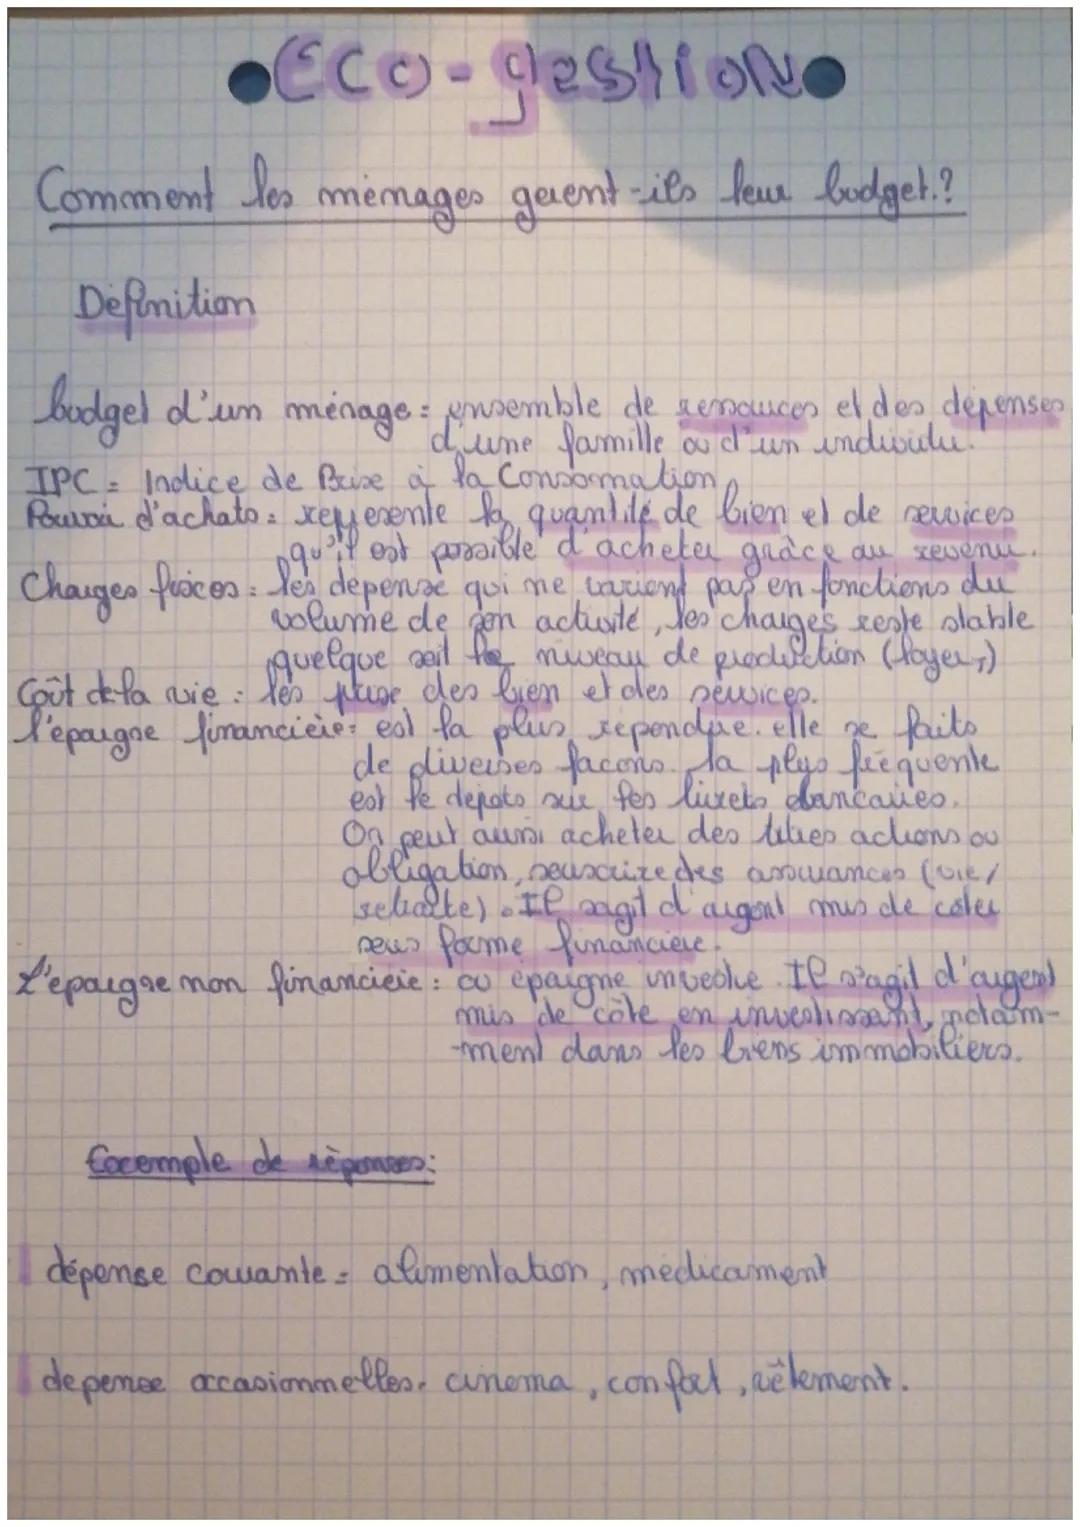 Eco-gestion
Comment les ménages gerent-ils leur budget.?
Définition
budget d'un ménage: ensemble de ressources et des dépenses
d'une famille ou d'un individu.
IPC = Indice de Prixe à la Consommation
Pouvoir d'achats: represente la quantité de bien et de services
qu'il est possible d'acheter grâce au revenu.
Charges fixces: les depense qui ne varient pas en fonctions du
volume de son activité, les charges reste stable
quelque soit le niveau de production (loyer,)
Coût de la vie: les prixe des bien et des services.
l'épargne financière: est la plus rependue. elle se faits
de diverses facons. la plus fréquente
est le depots sur les livrets bancaires.
On peut aussi acheter des titres actions ou
obligation, souscrire des assurances (vie/
retraite). Il sagit d'argent mis de coter
sous forme financiere.
L'epargne non financière: ou epargne investie. Il s'agit d'argent
mis de côte en investissant, notam-
-ment dans les biens immobiliers.
Excemple de réponses:
dépense courante = alimentation, medicament
depense occasionnelles. cinema, confort, vêtement.